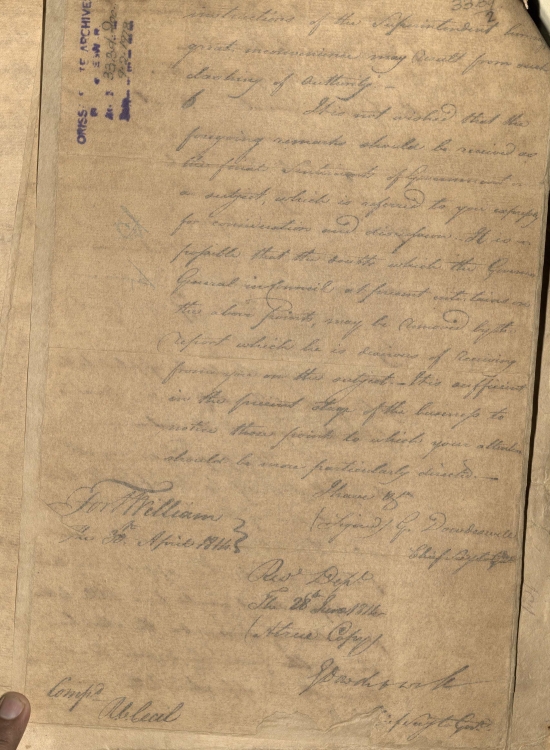 instructions of the Superintendent
great inconvenience may result from such
clashing of authority —
6 It is not wished that the
foregoing remarks should be received as
the final Sentiments of Government
a subject, which is referred to you expressly
for consideration and discussion. It is
possible that the doubts which the Governor
General in Council at present entertains on
the above points, may be removed by the
report which he is desirous of receiving
from you on the subject — It is sufficient
in the present stage of the business to
notice those points to which your attention
should be more particularly directed. —
I have &c
(Signed) G. Dowdeswell
Chief Secy to Govt
Fort William
The 30th April 1814
Rev Dept
The 28th June 1814
(A true Copy)
Secy to Govt
Compd
ORISS TE ARCHIVE